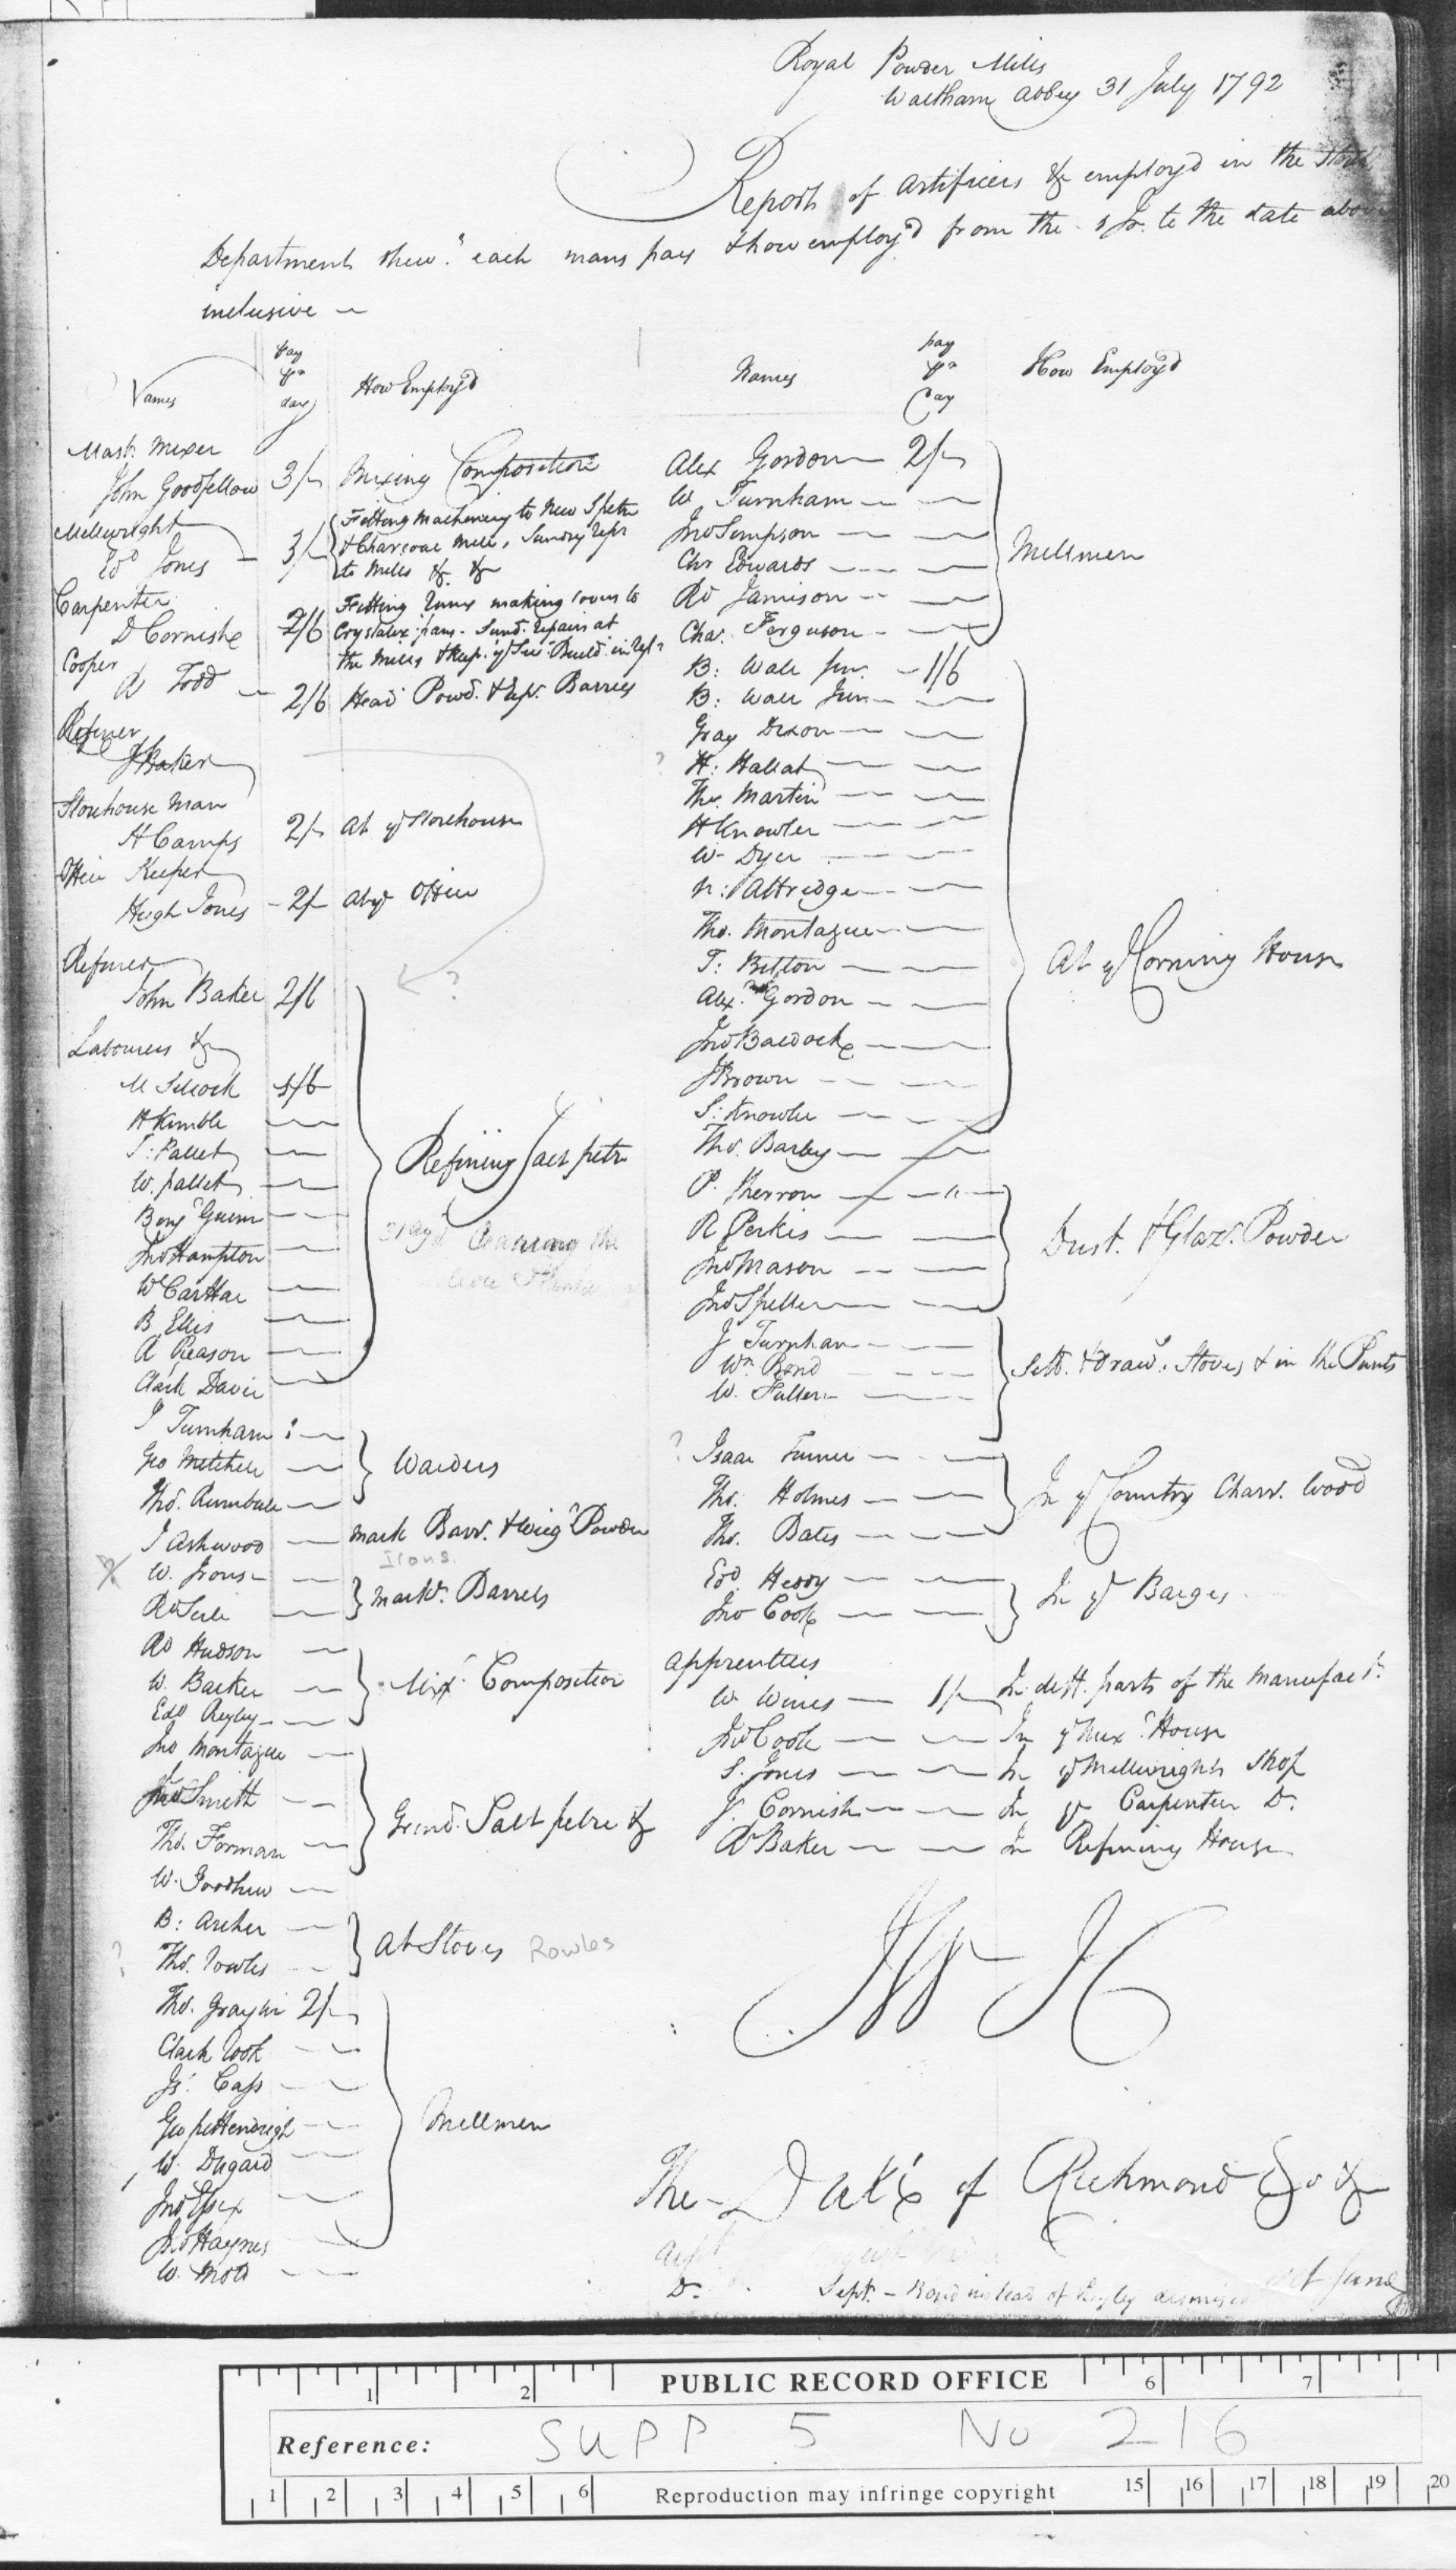 Royal Powder Mills
Waltham Abby 31 July 1792
Report of Artificers &c employ'd in the
Department shew.g each mans pay & how employ'd from the 1 to the date above
inclusive
Names pay pr day How Employ'd
Mastr Mixer
John Goodfellow 3/- Mixing Composition
Millwright
Edd Jones 3/- Fitting Machinery to New Spetre
& Charcoal Mill, Sundry Reprs
to Mills &c &c
Carpenter
D Cornish 2/6 Fitting making Covers to
Crystalix. pans. Sund. repairs at
the Mills & Keep. ye Build. in
Cooper
A Todd 2/6 Head Powd. & Barrels
Refiner
J Baker
Storehouse Man
H Camps 2/- At ye Storehouse
Office Keeper
Hugh Jones 2/- At ye Office
?
Refiner
John Baker 2/6
Labourers &c
M Silcock 1/6
H Kimble
J: Pallet
W. Pallet
Benj Guinn
Jno Hampton
W Carthae
B Ellis
A Reason
Clark Davie
Refining Salt petre
J Turnham
Geo Mitchell
Thos. Rumbale
Warders
J Ashwood mark Barr. & Weig Powder
Irons.
W. Irons
Rd Serle
markg. Barrels
Rd Hudson
W. Barker
Edd Regby
Mixg Composition
Jno Montague
Jno Smith
Thos. Forman
W. Goodhew
Grind. Salt petre &c
B: Archer
? Thos. Rowles
At Stoves Rowles
Thos. Graylin 2/-
Clark Cook
Js. Cass
Geo Pettendrigh
W. Dugard
Jno Essex
Jno Haynes
W. Mott
Millmen
Names pay pr Day How Employ'd
Alex Gordon 2/-
W. Turnham
Jno Simpson
Chr Edwards
Rd Jamison
Chas. Ferguson
Millmen
B: Wall Senr. 1/6
B: Wall Junr
Gray Dixon
? H: Hallat
Thos. Martin
H Knowler
W. Dyer
N: Attridge
Thos. Montague
T: Bitton
Alex. Gordon
Jno Baldock
J Brown
S: Knowler
Thos. Barley
At ye Corning House
P. Sherron
R Perkis
Jno Mason
Jno Speller
Dust. & Glaz. Powder
J Turnham
Wm. Bond
W. Fuller
Sett. & Draw. Stoves & in the Punts
? Isaac Turner
Thos. Holmes
Thos. Bates
In ye Country Charr. Wood
Edd. Heddy
Jno Cook
In ye Barges
Apprentices
W. Wines 1/- In difft. parts of the manufact.
Jno Cook In ye Mixg House
S. Jones In ye Millwrights Shop
J. Cornish In ye Carpenters Do.
Rd Baker In Refining House
The Duke of Richmond &c &c
Do. Sept. - Bond instead of Regby dismised
PUBLIC RECORD OFFICE
1 2 6 7
Reference: SUPP 5 No 216
1 2 3 4 5 6 Reproduction may infringe copyright 15 16 17 18 19 20